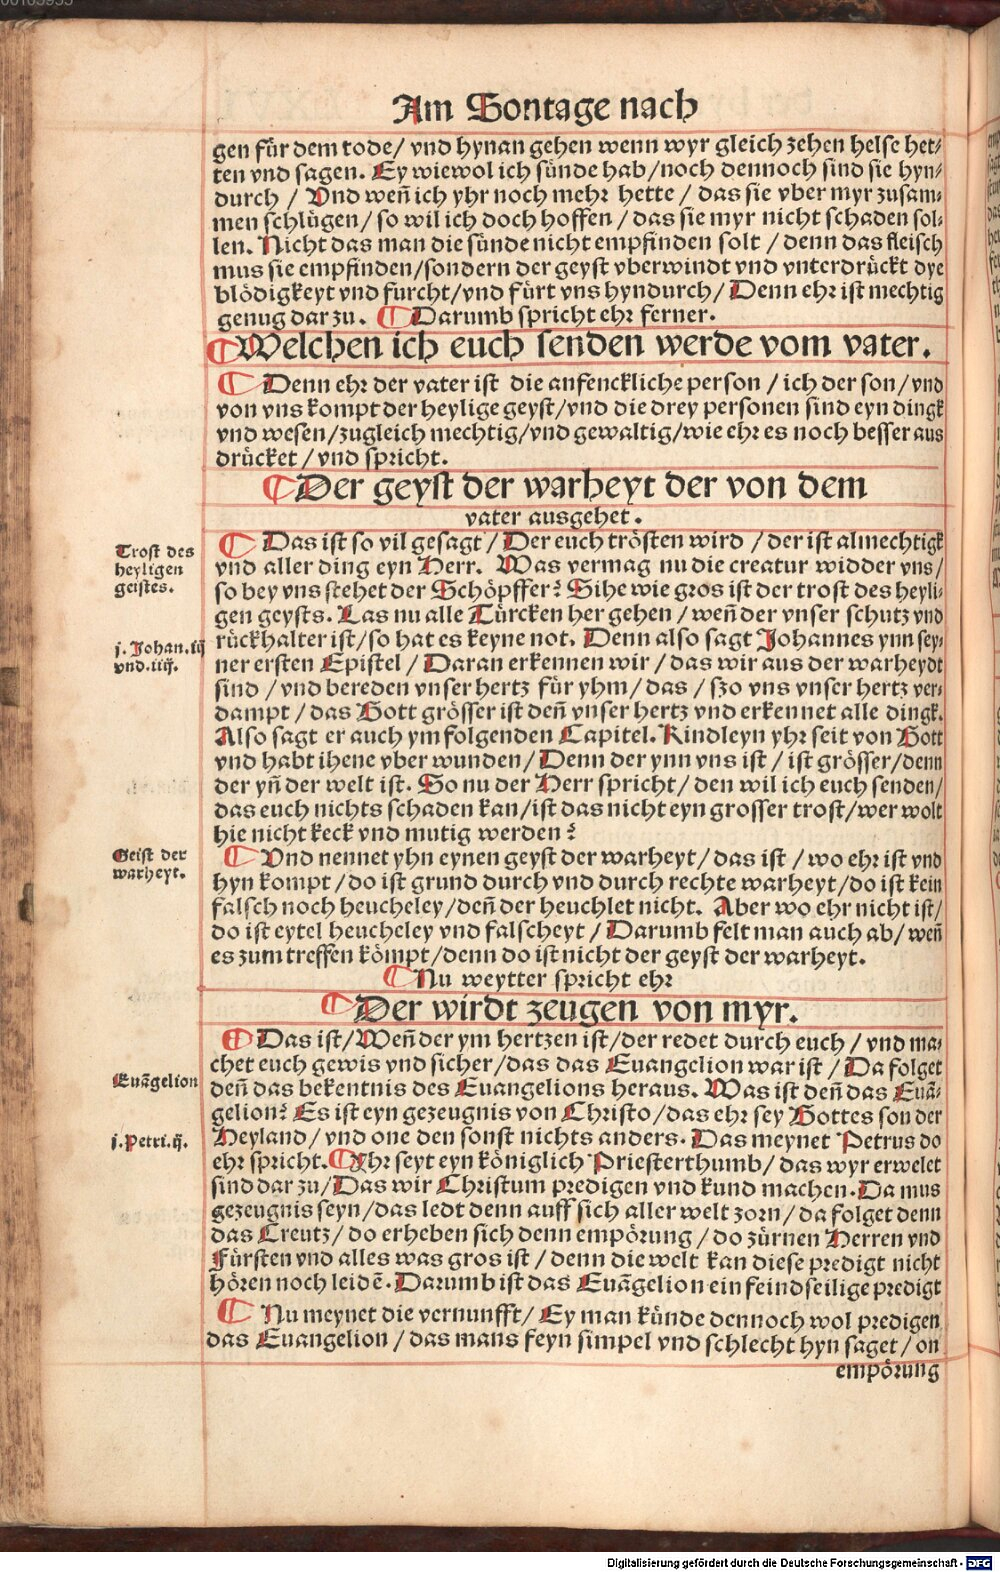 Am Sontage nach
gen für dem tode/ vnd hynan gehen wenn wyr gleich zehen helse het⸗
ten vnd sagen. Ey wiewol ich sünde hab/ noch dennoch sind sie hyn⸗
durch / Vnd weñ ich yhr noch mehr hette / das sie vber myr zusam⸗
men schlügen/ so wil ich doch hoffen / das sie myr nicht schaden sol⸗
len. Nicht das man die sünde nicht empfinden solt / denn das fleisch
mus sie empfinden/ sondern der geyst vberwindt vnd vnterdrückt dye
blödigkeyt vnd furcht/ vnd fürt vns hyndurch/ Denn ehr ist mechtig
genug dar zu. ¶ Darumb spricht ehr ferner.
¶ Welchen ich euch senden werde vom vater.
¶ Denn ehr der vater ist die anfenckliche person / ich der son/ vnd
von vns kompt der heylige geyst/ vnd die drey personen sind eyn dingk
vnd wesen/ zugleich mechtig/ vnd gewaltig/ wie ehr es noch besser aus
drücket / vnd spricht.
¶ Der geyst der warheyt der von dem
vater ausgehet.
Trost des
heyligen
geistes.
¶ Das ist so vil gesagt / Der euch trösten wird / der ist almechtigk
vnd aller ding eyn Herr. Was vermag nu die creatur widder vns/
so bey vns stehet der Schöpffer? Sihe wie gros ist der trost des heyli⸗
gen geysts. Las nu alle Türcken her gehen / weñ der vnser schutz vnd
j. Johan. iij
vnd. iiij.
rückhalter ist/ so hat es keyne not. Denn also sagt Johannes ynn sey⸗
ner ersten Epistel / Daran erkennen wir / das wir aus der warheydt
sind / vnd bereden vnser hertz für yhm/ das / szo vns vnser hertz ver⸗
dampt / das Gott grösser ist deñ vnser hertz vnd erkennet alle dingk.
Also sagt er auch ym folgenden Capitel. Kindleyn yhr seit von Gott
vnd habt ihene vber wunden/ Denn der ynn vns ist / ist grösser/ denn
der yñ der welt ist. So nu der Herr spricht / den wil ich euch senden/
das euch nichts schaden kan/ ist das nicht eyn grosser trost/ wer wolt
hie nicht keck vnd mutig werden?
Geist der
warheyt.
¶ Vnd nennet yhn eynen geyst der warheyt/ das ist / wo ehr ist vnd
hyn kompt / do ist grund durch vnd durch rechte warheyt/ do ist kein
falsch noch heucheley/ deñ der heuchlet nicht. Aber wo ehr nicht ist/
do ist eytel heucheley vnd falscheyt / Darumb felt man auch ab/ weñ
es zum treffen kömpt/ denn do ist nicht der geyst der warheyt.
¶ Nu weytter spricht ehr
¶ Der wirdt zeugen von myr.
¶ Das ist/ Weñ der ym hertzen ist/ der redet durch euch / vnd ma⸗
chet euch gewis vnd sicher/ das das Euangelion war ist / Da folget
Euãgelion
deñ das bekentnis des Euangelions heraus. Was ist deñ das Euã⸗
gelion? Es ist eyn gezeugnis von Christo/ das ehr sey Gottes son der
j. Petri. ij.
Heyland/ vnd one den sonst nichts anders. Das meynet Petrus do
ehr spricht. ¶ Yhr seyt eyn königlich Priesterthumb/ das wyr erwelet
sind dar zu/ Das wir Christum predigen vnd kund machen. Da mus
gezeugnis seyn/ das ledt denn auff sich aller welt zorn/ da folget denn
das Creutz/ do erheben sich denn empörung/ do zürnen Herren vnd
Fürsten vnd alles was gros ist / denn die welt kan diese predigt nicht
hören noch leidẽ. Darumb ist das Euãgelion ein feindseilige predigt
¶ Nu meynet die vernunfft/ Ey man künde dennoch wol predigen
das Euangelion / das mans feyn simpel vnd schlecht hyn saget / on
empörung
Digitalisierung gefördert durch die Deutsche Forschungsgemeinschaft - DFG